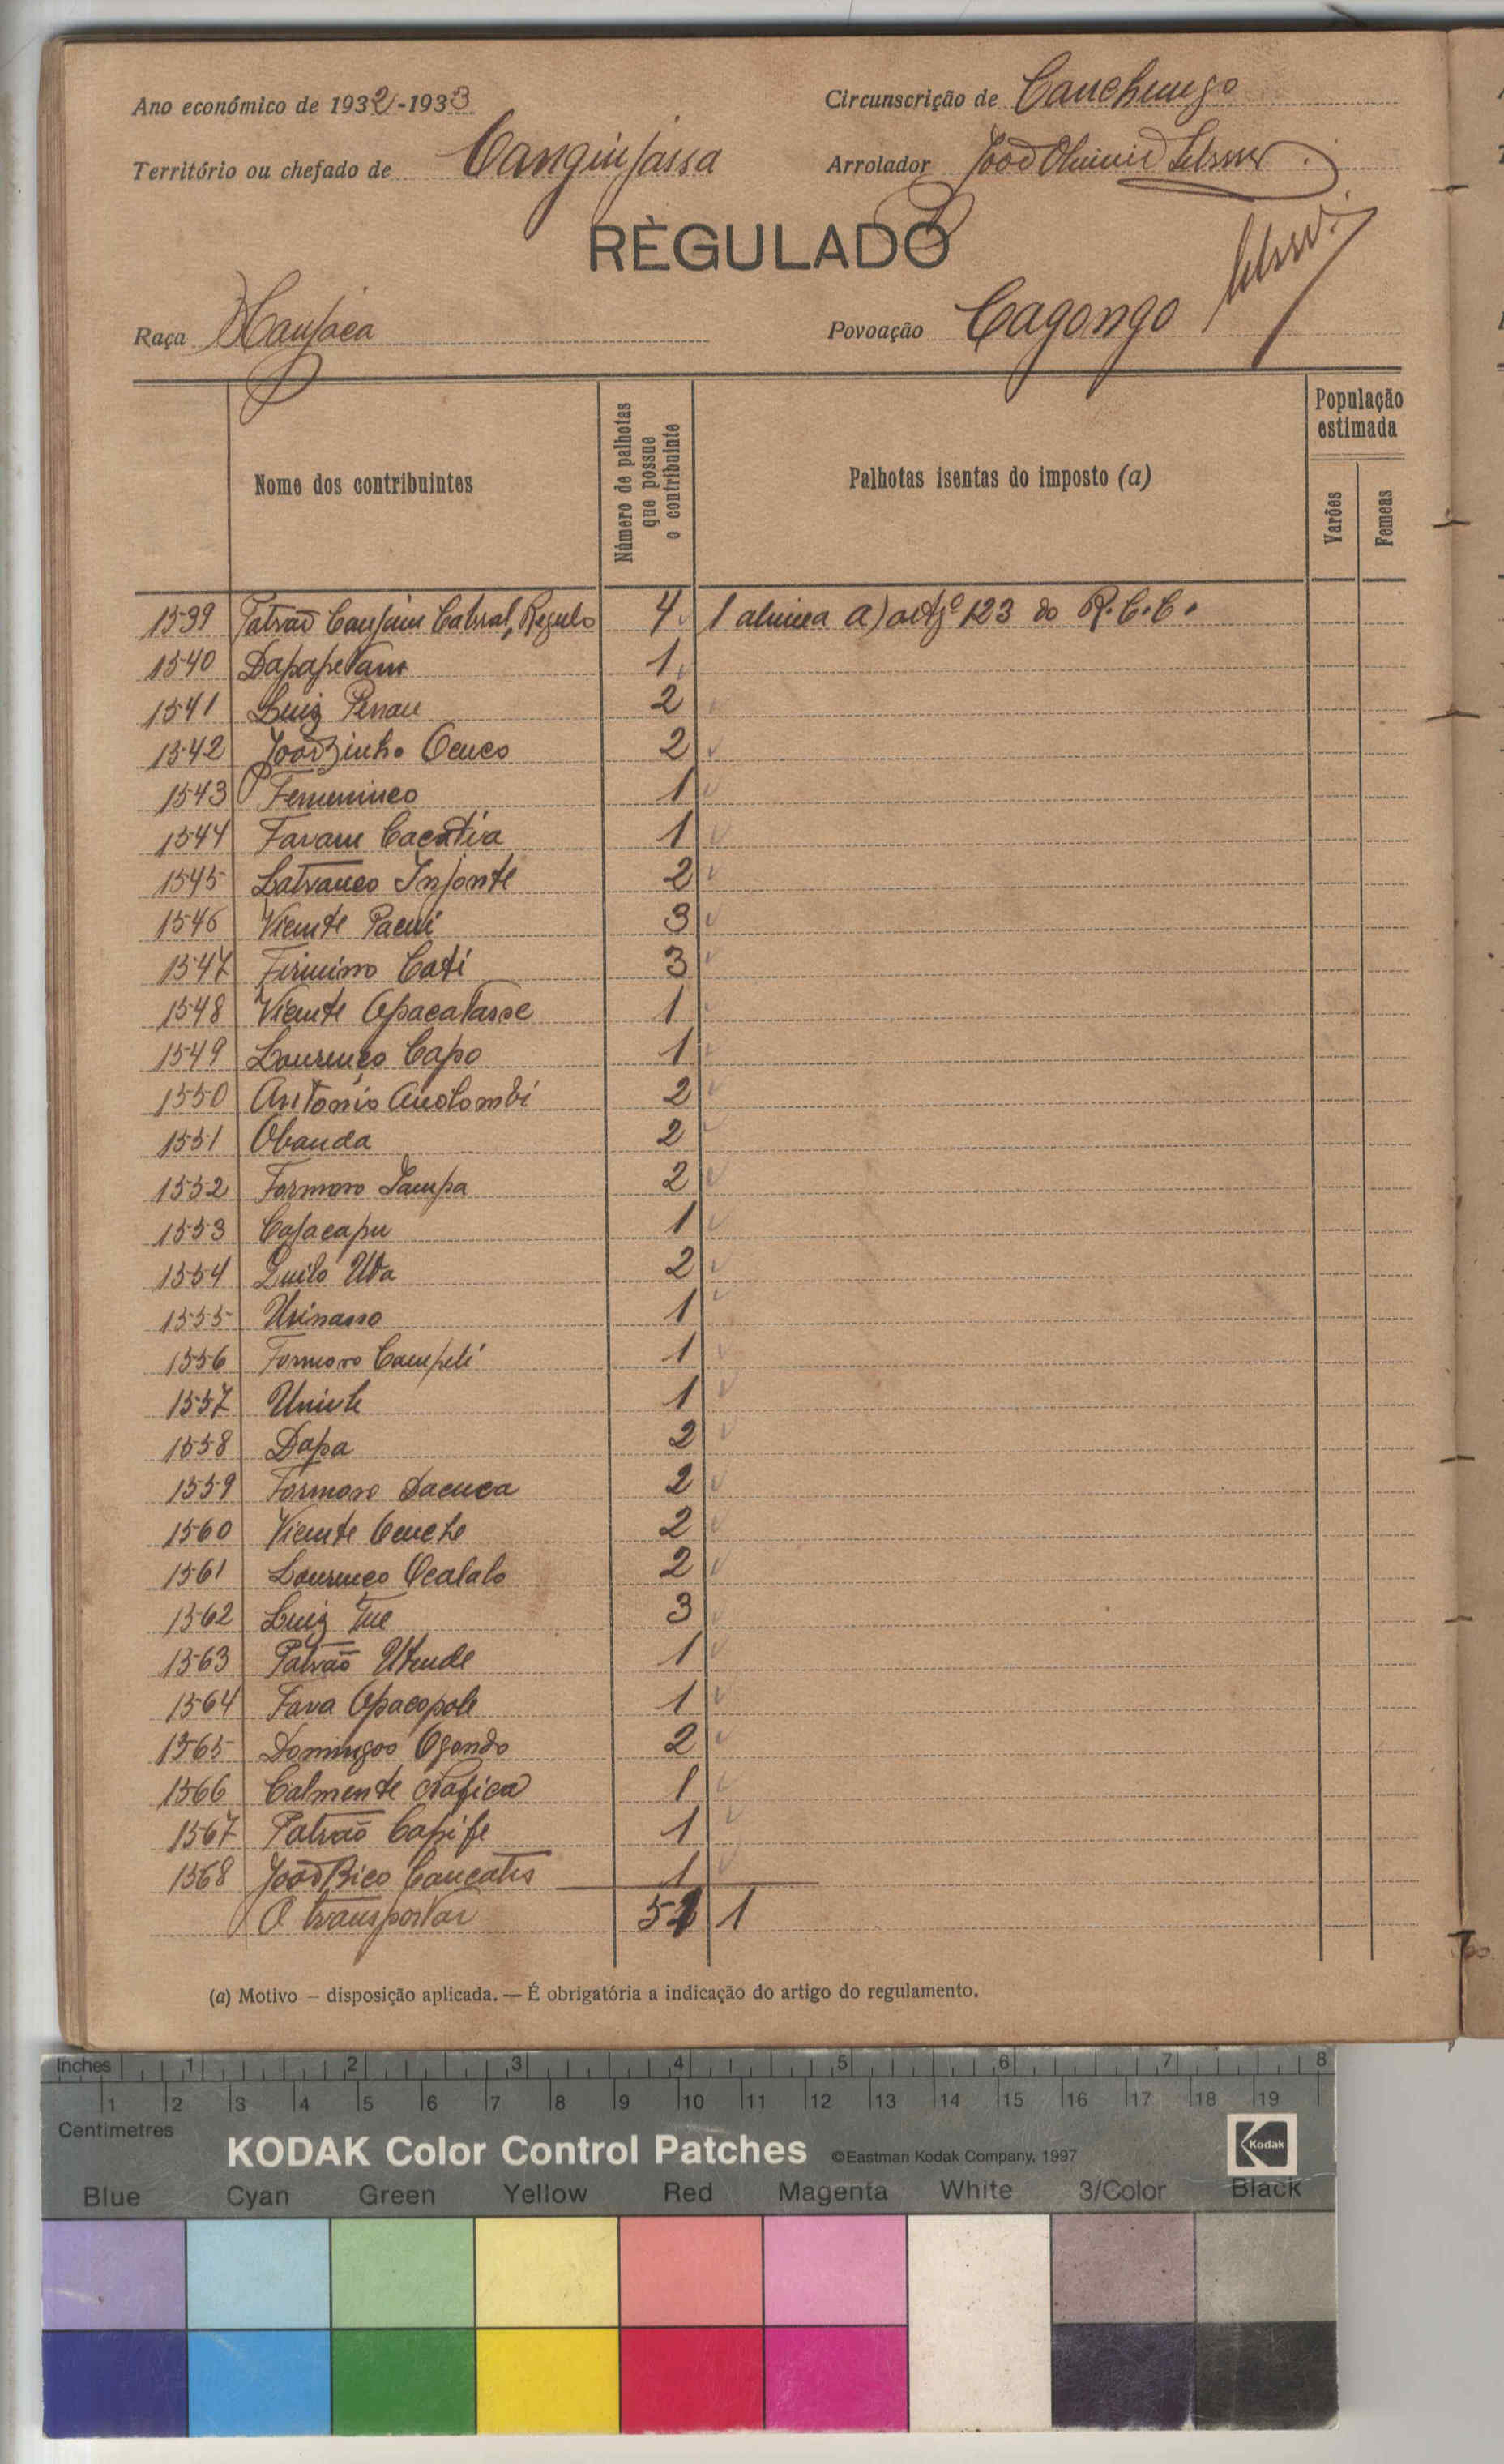 Ano económico de 1932-1933
Circunscrição de Canchungo
Território ou chefado de Canguinjassa
Arrolador João
REGULADO
Raça Manjaca
Povoação Cagongo
Nome dos contribuintes
Número de palhotas que possue o contribuinte
Palhotas isentas do imposto (a)
População estimada
Varões
Femeas
1539 Patrão Cabral, Regulo 4 1 alinea a) artgº 123 do R.C.C.
1540 Dapapetam 1
1541 Luiz Penau 2
1542 Joãozinho Ocuco 2
1543 Femenineo 1
1544 Favam 1
1545 Latranco Injonte 2
1546 Vicente Pacui 3
1547 Firmino Cati 3
1548 Vicente Apacatasse 1
1549 Lourenço Capo 1
1550 Antonio 2
1551 Obanda 2
1552 Formoso Sampa 2
1553 Cajacapu 1
1554 Quilo Uda 2
1555 1
1556 Formoso Campelé 1
1557 1
1558 Dapa 2
1559 Formoso Dacuca 2
1560 Vicente 2
1561 Lourenço Ocalalo 2
1562 Luiz Tue 3
1563 Patrão Utende 1
1564 Fava Apacopole 1
1565 Domingos Ogondo 2
1566 Calmente 1
1567 Patrão Capife 1
1568 João Bico 1
A transportar 51 1
(a) Motivo — disposição aplicada. — É obrigatória a indicação do artigo do regulamento.
Inches 1 2 3 4 5 6 7 8
1 2 3 4 5 6 7 8 9 10 11 12 13 14 15 16 17 18 19
Centimetres
KODAK Color Control Patches ©Eastman Kodak Company, 1997 Kodak
Blue Cyan Green Yellow Red Magenta White 3/Color Black